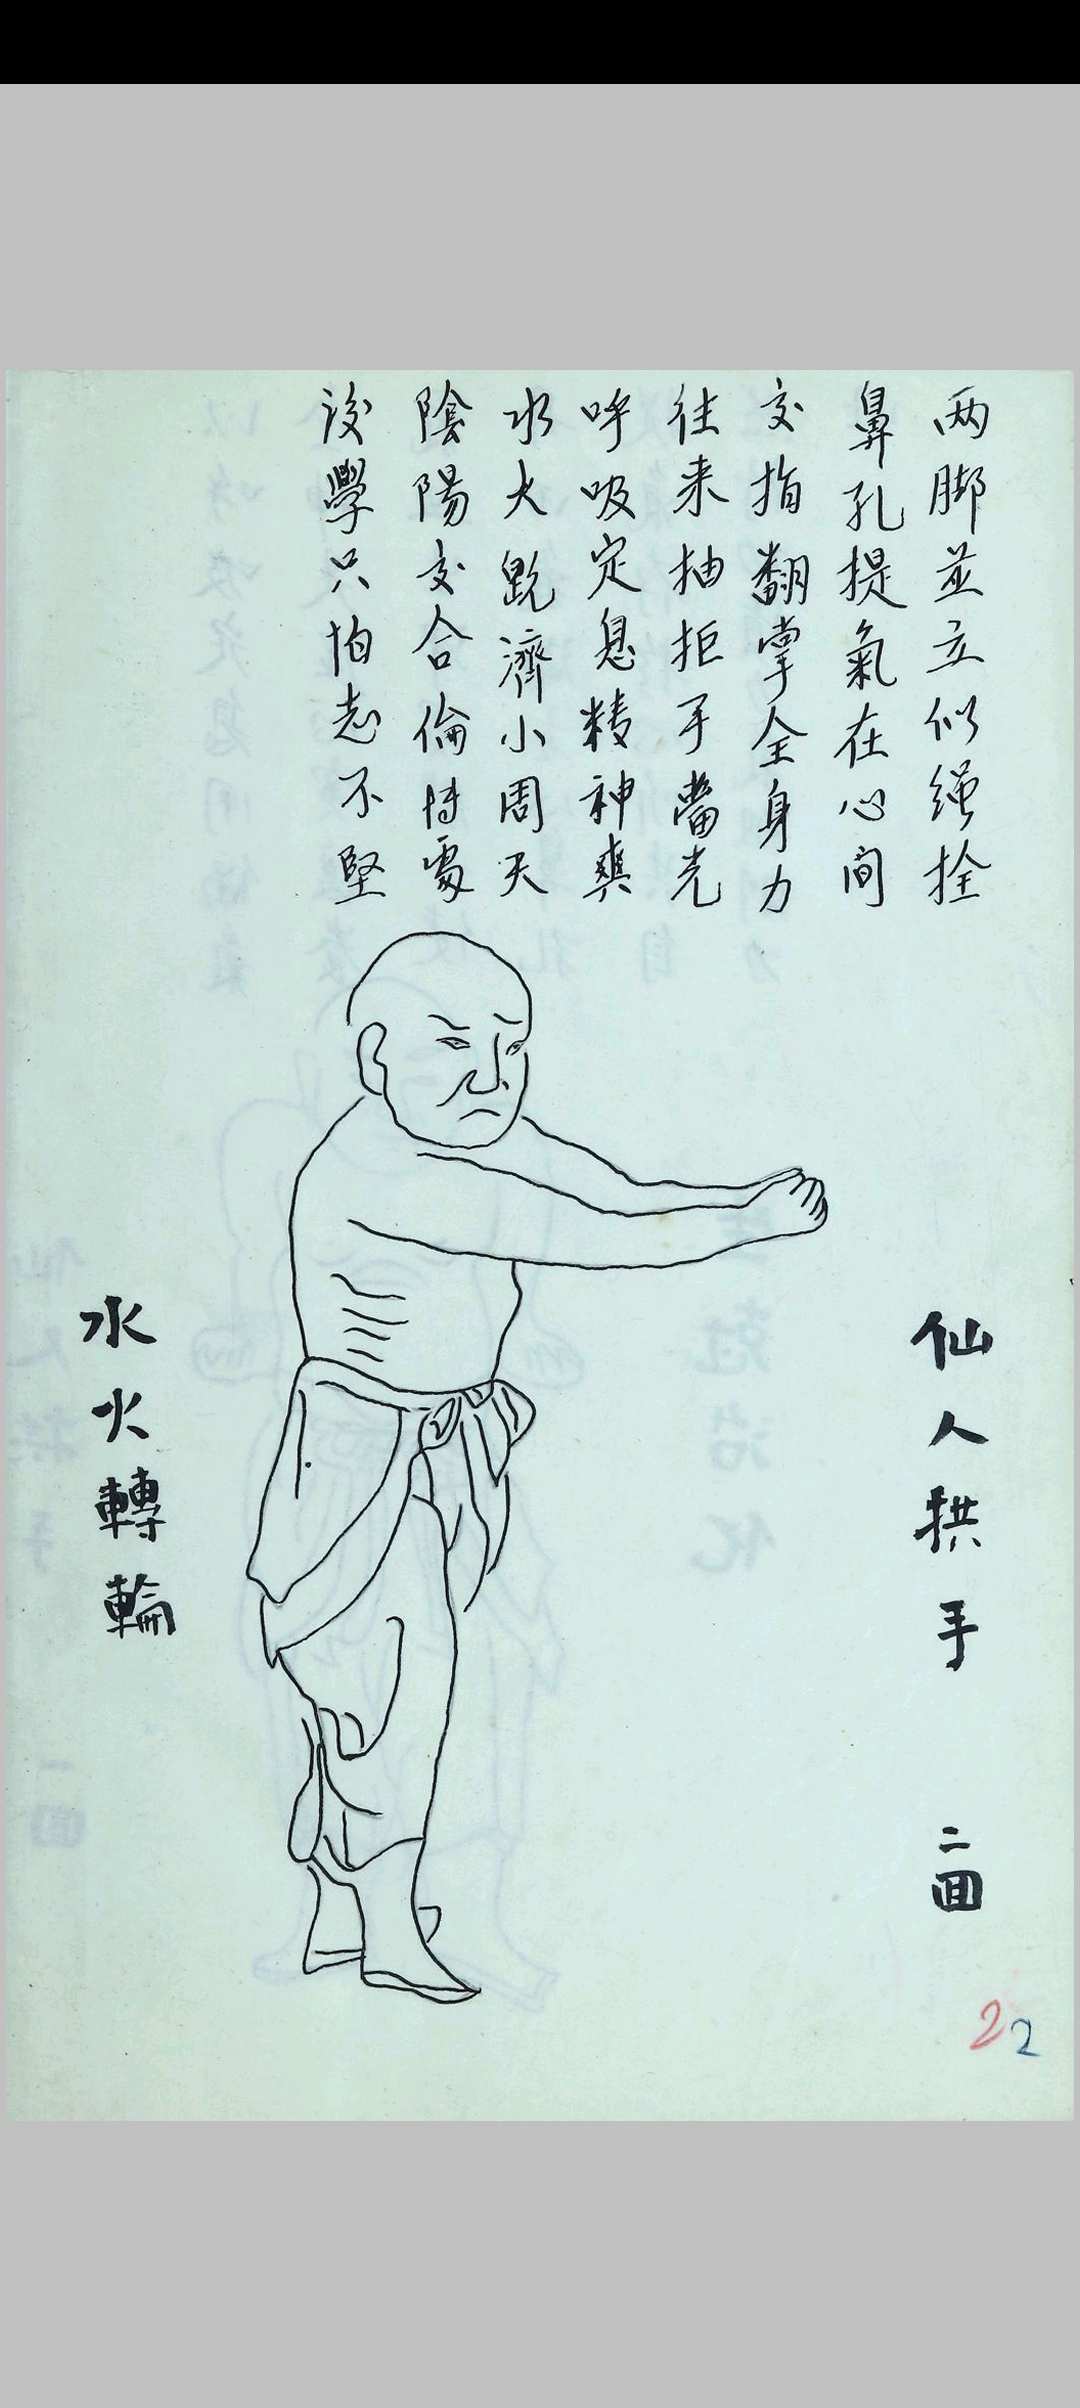 两脚並立似繩拴
鼻孔提氣在心間
交指翻掌全身力
往来抽拒手當先
呼吸定息精神爽
水火既濟小周天
陰陽交合倫转處
後學只怕志不堅
仙人拱手 二回
水火轉輪
22